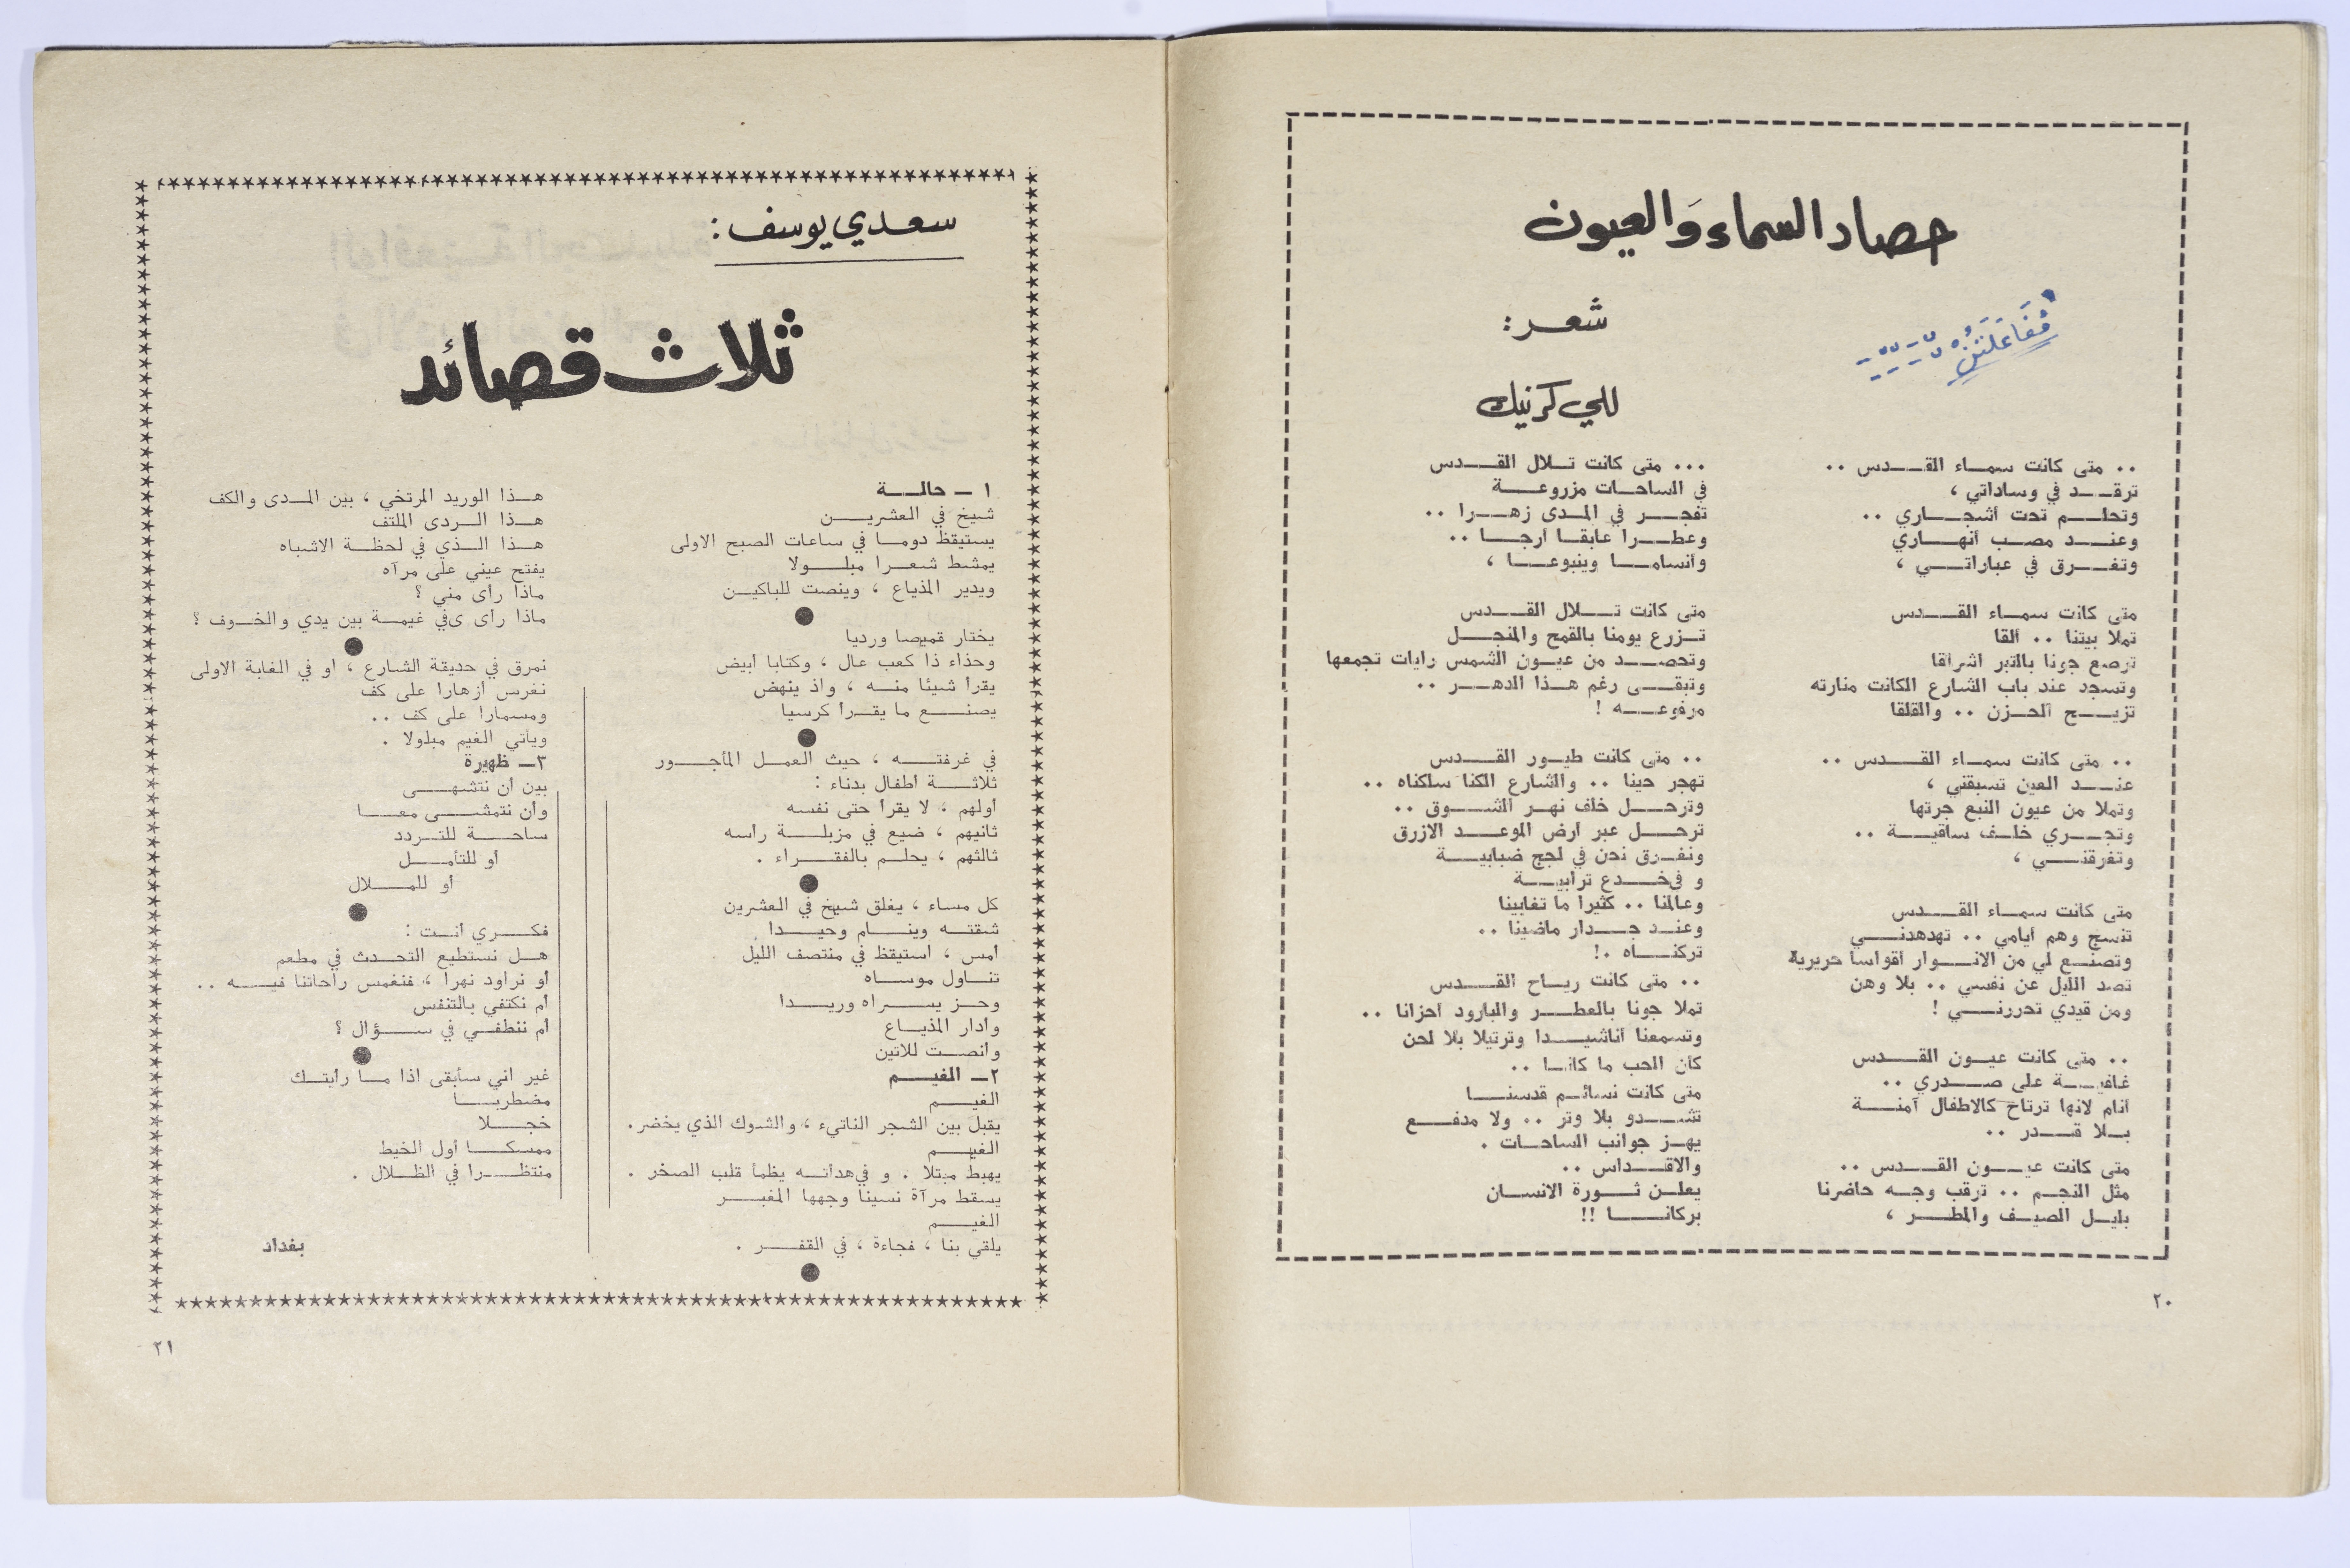 حصاد السماء وَالعيون
شعر :
للي كرنيك
مُفَاعَلَتُنْ
.. متى كانت سماء القدس ..
ترقد في وساداتي ،
وتحلم تحت أشجاري ..
وعند مصب أنهاري
وتغرق في عباراتي ،
متى كانت سماء القدس
تملا بيتنا .. ألقا
ترصع جونا بالتبر اشراقا
وتسجد عند باب الشارع الكانت منارته
تزيح الحزن .. والقلقا
.. متى كانت سماء القدس ..
عند العين تسبقني ،
وتملا من عيون النبع جرتها
وتجري خلف ساقية ..
وتغرقني ،
متى كانت سماء القدس
تنسج وهم أيامي .. تهدهدني
وتصنع لي من الانوار أقواسا حريرية
تصد الليل عن نفسي .. بلا وهن
ومن قيدي تحررني !
.. متى كانت عيون القدس
غافية على صدري ..
أنام لانها ترتاح كالاطفال آمنة
بلا قدر ..
متى كانت عيون القدس ..
مثل النجم .. ترقب وجه حاضرنا
بليل الصيف والمطر ،
... متى كانت تلال القدس
في الساحات مزروعة
تفجر في المدى زهرا ..
وعطرا عابقا أرجا ..
وأنساما وينبوعا ،
متى كانت تلال القدس
تزرع يومنا بالقمح والمنجل
وتحصد من عيون الشمس رايات تجمعها
وتبقى رغم هذا الدهر ..
مرفوعه !
.. متى كانت طيور القدس
تهجر حينا .. والشارع الكنا سلكناه ..
وترحل خلف نهر الشوق ..
ترحل عبر أرض الموعد الازرق
ونغرق نحن في لجج ضبابية
و في خدع ترابية
وعالمنا .. كثيرا ما تغابينا
وعند جدار ماضينا ..
تركناه .!
.. متى كانت رياح القدس
تملا جونا بالعطر والبارود أحزانا ..
وتسمعنا أناشيدا وترتيلا بلا لحن
كأن الحب ما كانا ..
متى كانت نسائم قدسنا
تشدو بلا وتر .. ولا مدفع
يهز جوانب الساحات .
والاقداس ..
يعلن ثورة الانسان
بركانا !!
٢٠
سعدي يوسف :
ثلاث قصائد
١ ـ حالة
شيخ في العشرين
يستيقظ دوما في ساعات الصبح الاولى
يمشط شعرا مبلولا
ويدير المذياع ، وينصت للباكين
●
يختار قميصا ورديا
وحذاء ذا كعب عال ، وكتابا أبيض
يقرأ شيئا منه ، واذ ينهض
يصنع ما يقرأ كرسيا
●
في غرفته ، حيث العمل المأجور
ثلاثة اطفال بدناء :
أولهم ، لا يقرأ حتى نفسه
ثانيهم ، ضيع في مزبلة رأسه
ثالثهم ، يحلم بالفقراء .
●
كل مساء ، يغلق شيخ في العشرين
شقته وينام وحيدا
أمس ، استيقظ في منتصف الليل
تناول موساه
وحز يسراه وريدا
وأدار المذياع
وانصت للاتين
٢ـ الغيم
الغيم
يقبل بين الشجر الناتيء ، والشوك الذي يخضر .
الغيم
يهبط مبتلا . و في هدأته يظمأ قلب الصخر .
يسقط مرآة نسينا وجهها المغبر
الغيم
يلقي بنا ، فجاءة ، في القفر .
●
هذا الوريد المرتخي ، بين المدى والكف
هذا الردى الملتف
هذا الذي في لحظة الاشباه
يفتح عيني على مرآه
ماذا رأى مني ؟
ماذا رأى ىفي غيمة بين يدي والخوف ؟
●
نمرق في حديقة الشارع ، أو في الغابة الاولى
نغرس أزهارا على كف
ومسمارا على كف ..
ويأتي الغيم مبلولا .
٣ـ ظهيرة
بين ان نتشهى
وان نتمشى معا
ساحة للتردد
أو للتأمل
أو للملال
●
فكري انت :
هل نستطيع التحدث في مطعم
أو نراود نهرا ، فنغمس راحاتنا فيه ..
أم نكتفي بالتنفس
أم ننطفي في سؤال ؟
●
غير اني سأبقى اذا ما رأيتك
مضطربا
خجلا
ممسكا أول الخيط
منتظرا في الظلال .
بغداد
٢١